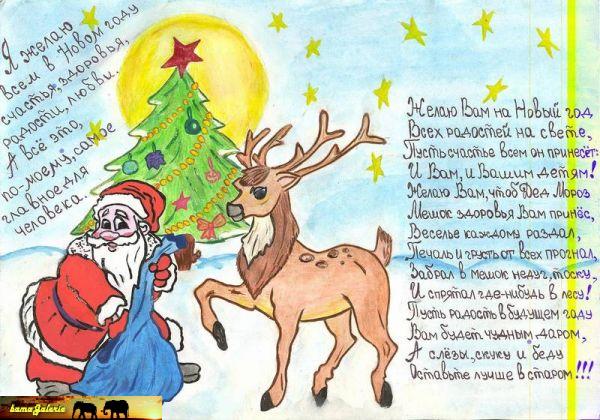 Я желаю
всем в Новом году
счастья, здоровья,
радости, любви.
А всё это,
по-моему, самое
главное для
человека.
Желаю Вам на Новый год
Всех радостей на свете,
Пусть счастье всем он принесёт:
И Вам, и Вашим детям!
Желаю Вам, чтоб Дед Мороз
Мешок здоровья Вам принёс,
Веселье каждому раздал,
Печаль и грусть от всех прогнал,
Забрал в мешок недуг, тоску,
И спрятал где-нибудь в лесу!
Пусть радость в будущем году
Вам будет чудным даром,
А слёзы, скуку и беду
Оставьте лучше в старом!!!
LamaGalerie